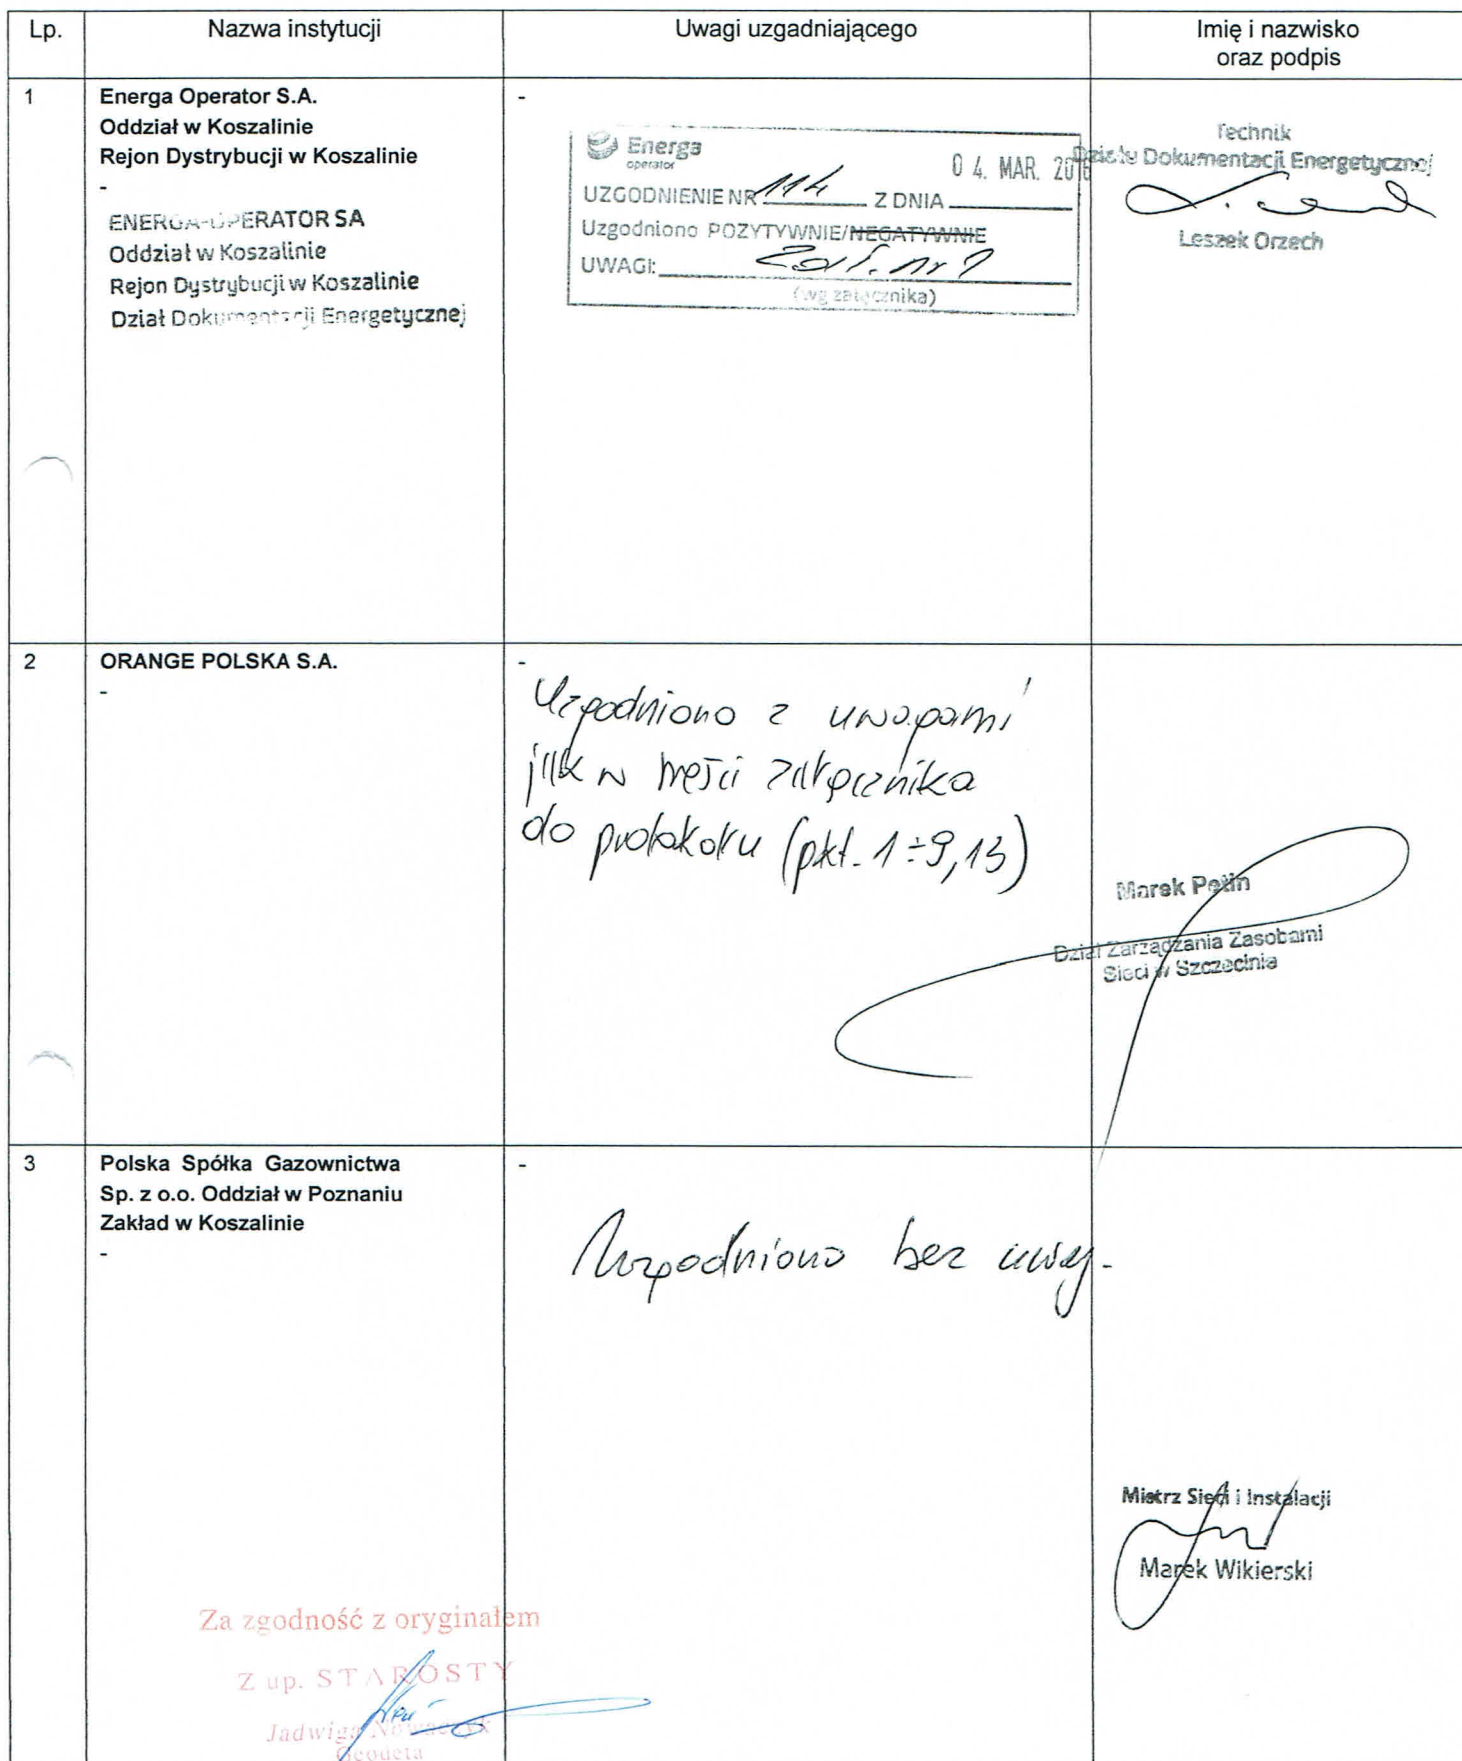 Lp.
Nazwa instytucji
Uwagi uzgadniającego
Imię i nazwisko
oraz podpis
1
Energa Operator S.A.
Oddział w Koszalinie
Rejon Dystrybucji w Koszalinie
-
ENERGA-OPERATOR SA
Oddział w Koszalinie
Rejon Dystrybucji w Koszalinie
Dział Dokumentacji Energetycznej
-
Energa
operator
04. MAR. 201
UZGODNIENIE NR 114 Z DNIA
Uzgodniono POZYTYWNIE/NEGATYWNIE
UWAGI: Zał. nr 1
(wg załącznika)
Technik
Działu Dokumentacji Energetycznej
Leszek Orzech
2
ORANGE POLSKA S.A.
-
-
Uzgodniono z uwagami
jak w treści załącznika
do protokołu (pkt. 1÷9,13)
Marek Petin
Dział Zarządzania Zasobami
Sieci w Szczecinie
3
Polska Spółka Gazownictwa
Sp. z o.o. Oddział w Poznaniu
Zakład w Koszalinie
-
-
Uzgodniono bez uwag.
Mistrz Sieci i Instalacji
Marek Wikierski
Za zgodność z oryginałem
Z up. STAROSTY
Jadwiga Nowaczyk
Geodeta